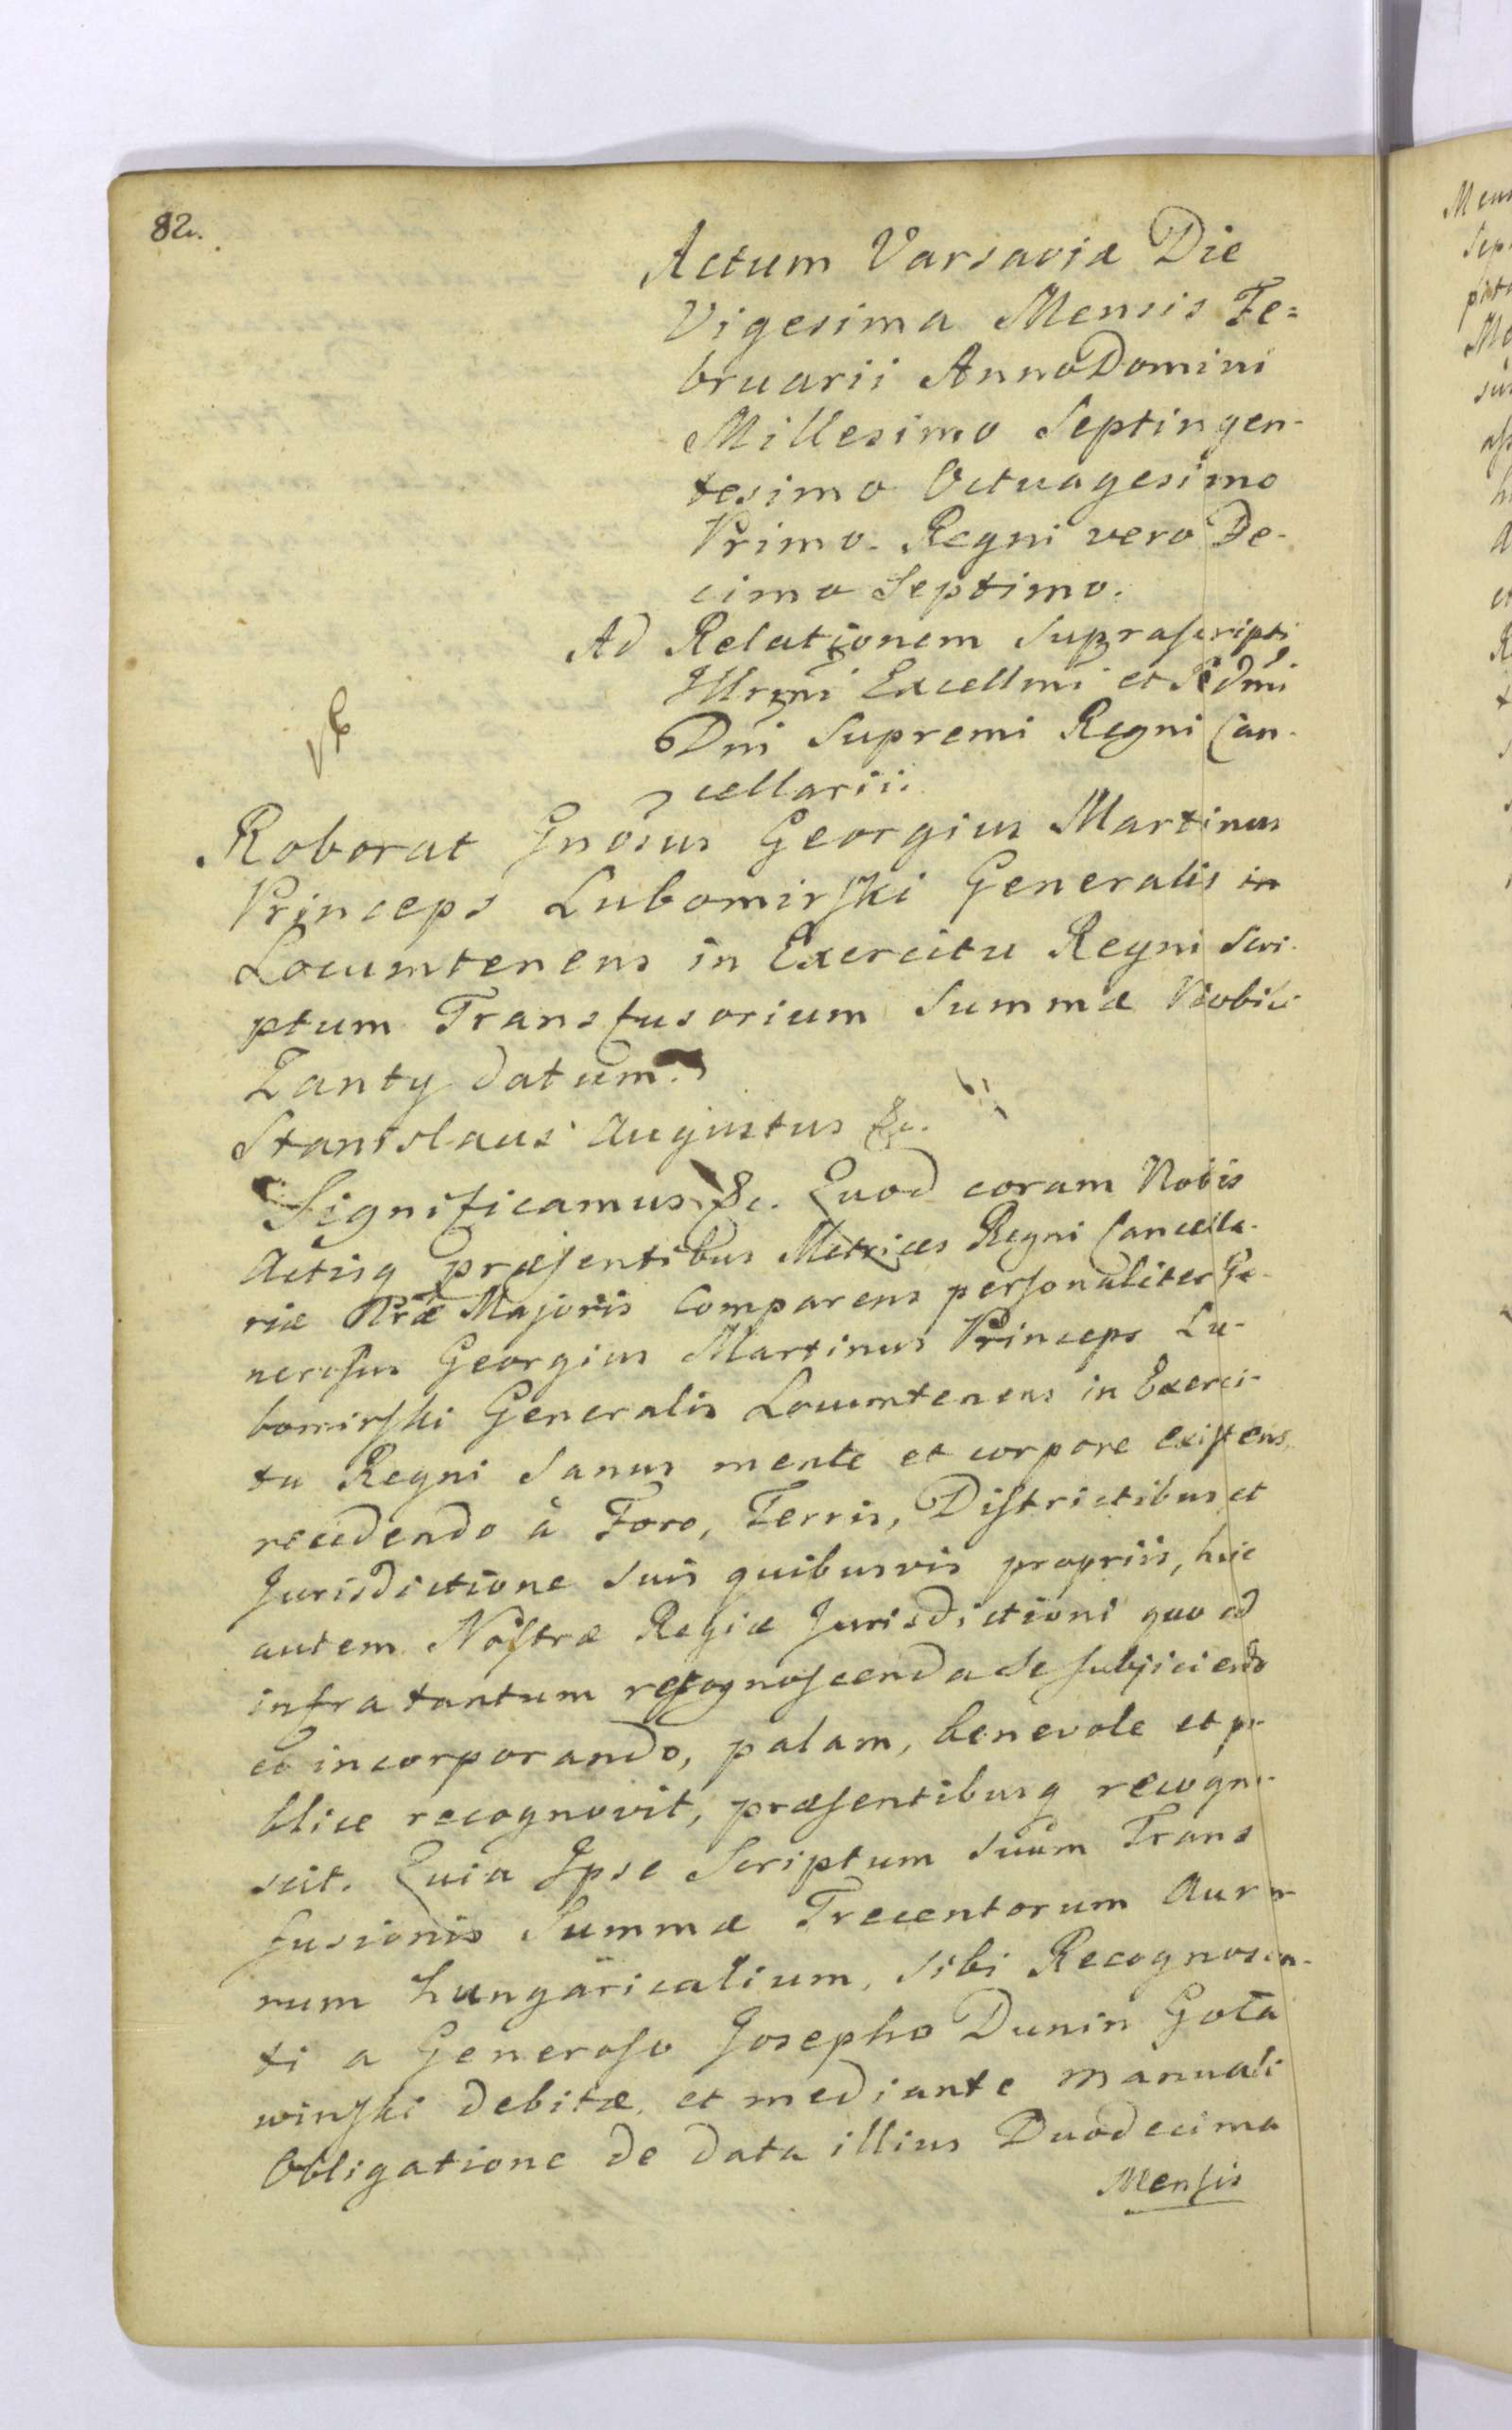 82.
Actum Varsaviæ Die
Vigesima Mensis Fe=
bruarii Anno Domini
Millesimo Septingen-
tesimo Octuagesimo
Primo. Regni vero De-
cimo Septimo.
Ad Relationem Supraſcripti
Illrmi Excellmi et Rdmi
Dni Supremi Regni Can-
cellarii.
Roborat Gnosus Georgius Martinus
Princeps Lubomirſki Generalis in
Locumtenens in Exercitu Regni Scri-
ptum Transfusorium Summæ Nobili
Zanty datum.
Stanislaus Augustus &c.
Significamus &c. Quod coram Nobis
Actisq præſentibus Metrices Regni Cancella-
riæ Nræ Majoris Comparens perſonaliter Ge-
neroſus Georgius Martinus Princeps Lu-
bomirſki Generalis Locumtenens in Exerci-
tu Regni Sanus mente et corpore exiſtens,
recedendo à Foro, Terris, Diſtrictibus et
Jurisdictione suis quibusvis propriis, huic
autem Noſtræ Regiæ Jurisdictioni quo ad
infra tantum recognoſcenda se ſubjiciendo
et incorporando, palam, benevole et pu-
blice recognovit, præſentibusq recogno-
scit. Quia Ipse Scriptum suum Trans
fusionis Summæ Trecentorum Aureo-
rum hungaricalium, sibi Recognoscen-
ti a Generoſo Josepho Dunin Gota
winſki debitæ, et mediante manuali
Obligatione de data illius Duodecima
Menſis